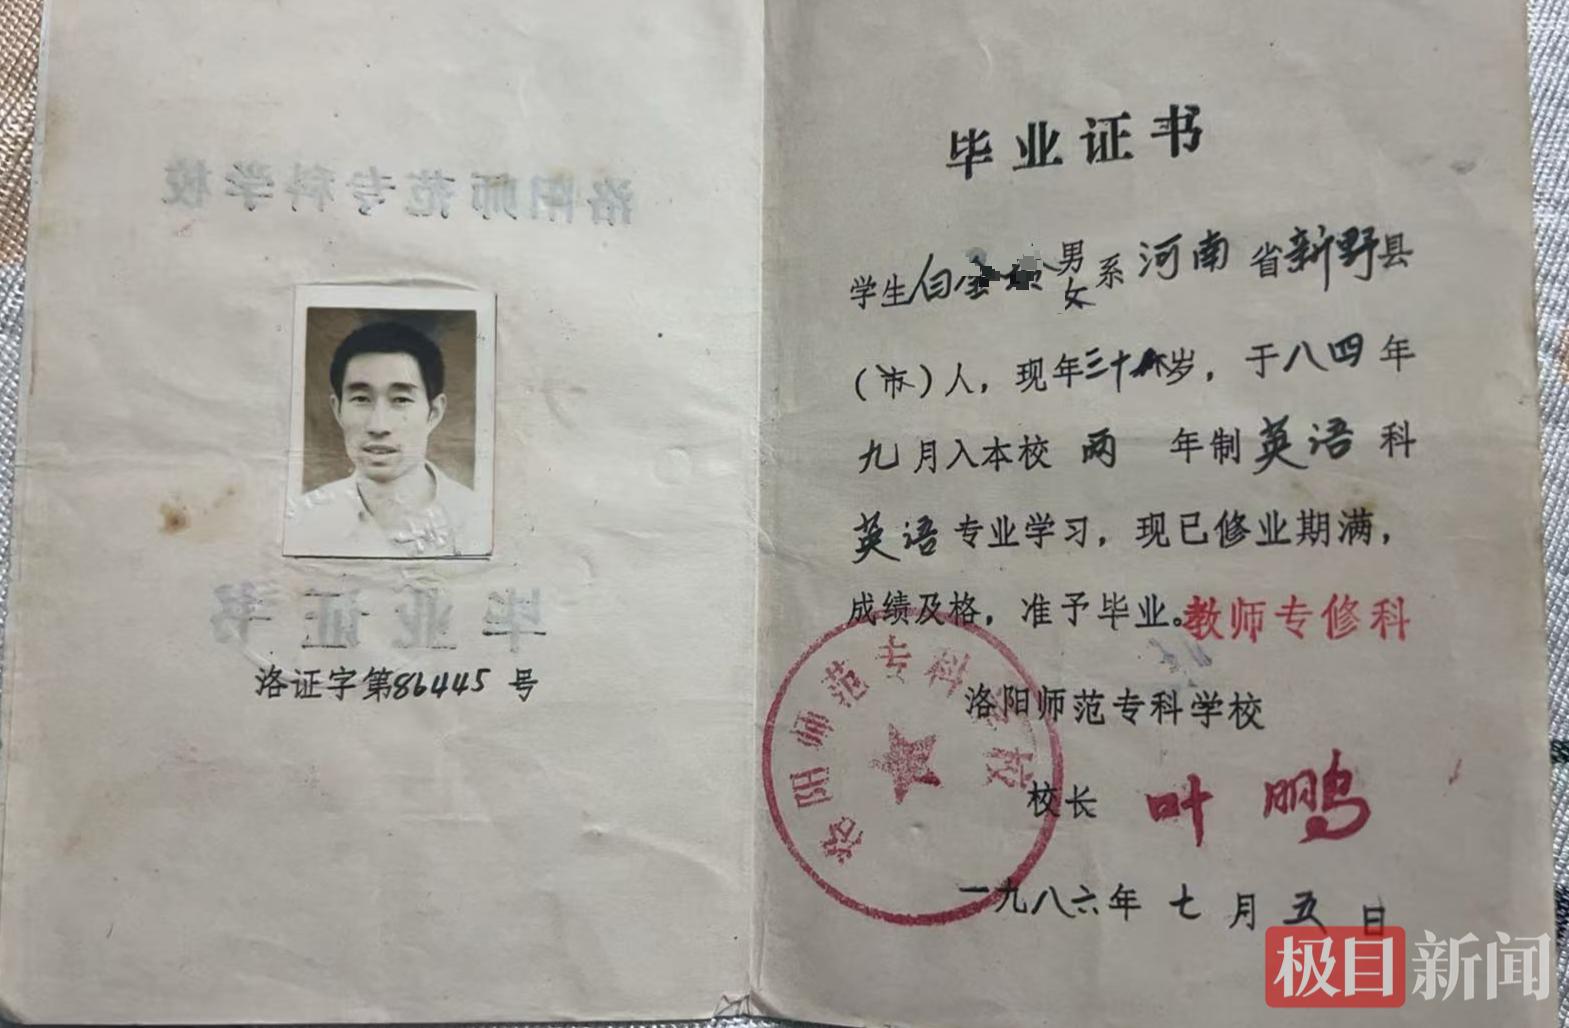 洛阳师范专科学校
毕业证书
洛证字第86445号
毕业证书
学生白 男女系河南省新野县
(市)人，现年三十 岁，于八四年
九月入本校两年制英语科
英语专业学习，现已修业期满，
成绩及格，准予毕业。教师专修科
洛阳师范专科学校
洛阳师范专科学校
校长 叶鹏
一九八六年七月五日
极目新闻